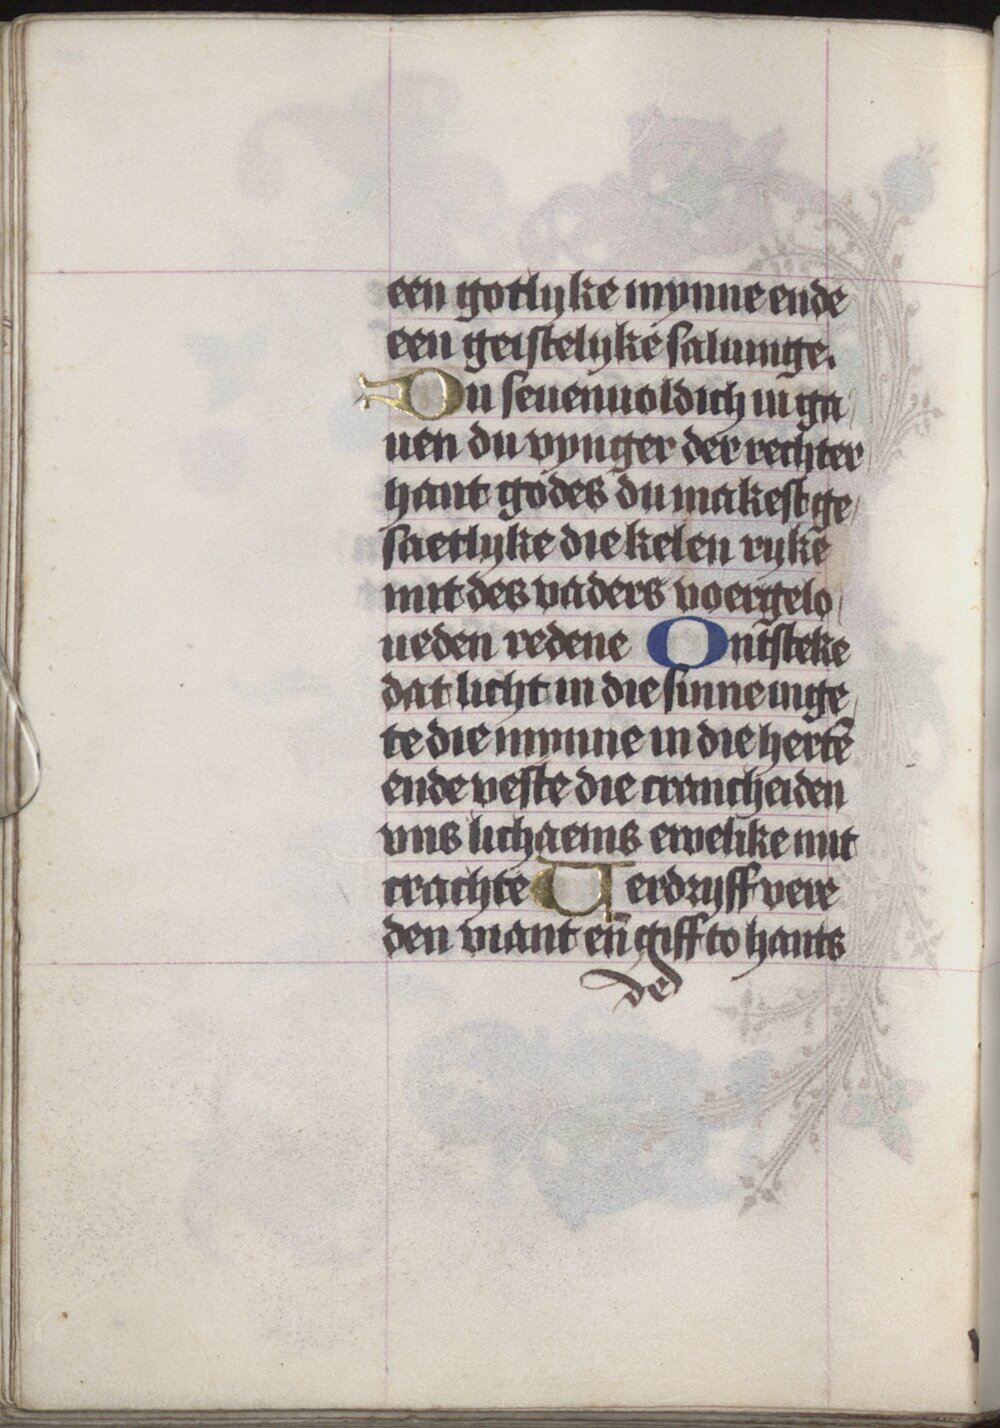 een gotlyke mynne ende
een geistelyke saluinge.
Du seuenuoldich in ga/
uen du vynger der rechter
hant godes du makest ge/
saetlyke die kelen rykē
mit des vaders voergelo/
ueden redene Ontsteke
dat licht in die sinne inge/
te die mynne in die hertē
ende veste die crancheiden
vns lichaems ewelike mit
crachte Uerdryff vere
den viant eñ giff to hants
de